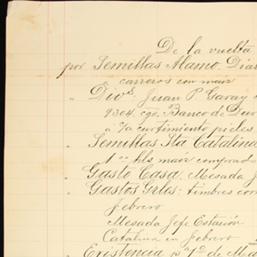 De la vuelta
por Semillas Alamo Diar
carreros con maiz
" Div.s Juan P Garay
9304. cgo Banco de Dur
a % curtimiento pieles
" Semillas Sta Catalina
1"" hls maiz comprado
" Gasto Casa: Mesada
" Gastos Grles: timbres cor
febrero
Mesada Jefe Estación
Catalina en febrero
" Existencia a 1º de Ma